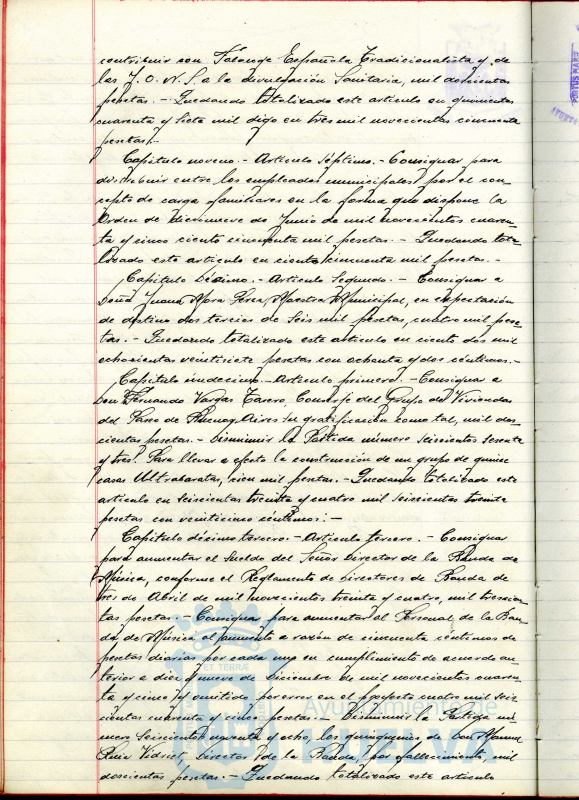 contribuir con Falange Española Tradicionalista y de
las J.O.N.S. a la divulgación Sanitaria, mil doscientas
pesetas.- Quedando totalizado este articulo en quinientas
cuarenta y siete mil digo en tres mil novecientas cincuenta
pesetas.-
Capitulo noveno.- Articulo Séptimo.- Consignar para
distribuir entre los empleados municipales por el con-
cepto de carga familiares en la forma que dispone la
Orden de diecinueve de Junio de mil novecientos cuaren-
ta y cinco ciento cincuenta mil pesetas.- Quedando tota-
lizado este articulo en ciento cincuenta mil pesetas.-
Capitulo Décimo.- Articulo Segundo.- Consignar a
Doña Juana Mora Perea, Maestra Municipal, en expectación
de destino dos tercios de Seis mil pesetas, cuatro mil pese-
tas.- Quedando totalizado este articulo en ciento dos mil
ochocientas veintisiete pesetas con ochenta y dos céntimos.-
Capitulo undecimo.- Articulo primero.- Consignar a
Don Fernando Vargas Tavero, Conserje del Grupo de Viviendas
del Paseo de Buenos Aires su gratificación como tal, mil dos-
cientas pesetas.- Disminuir la Partida número Seiscientos Sesenta
y tres. Para llevar a efecto la construcción de un grupo de quince
casas Ultrabaratas, cien mil pesetas.- Quedando totalizado este
articulo en seiscientas treinta y cuatro mil seiscientas treinta
pesetas con veinticinco céntimos.-
Capitulo décimo tercero.- Articulo tercero.- Consignar
para aumentar el sueldo del Señor Director de la Banda de
Música, conforme el Reglamento de Directores de Banda de
tres de Abril de mil novecientos treinta y cuatro, mil trescien-
tas pesetas. Consignar para aumentar al Personal de la Ban-
da de Música el aumento a razón de cincuenta céntimos de
pesetas diarias por cada uno en cumplimiento de acuerdo an-
terior a diez y nueve de Diciembre de mil novecientos cuaren-
ta y cinco y omitido por error en el proyecto cuatro mil seis-
cientas cuarenta y cinco pesetas.- Disminuir la Partida nú-
mero Seiscientos noventa y ocho, los quinquenios de Don Manuel
Ruiz Vidriet, Director de la Banda, por fallecimiento, mil
doscientas pesetas.- Quedando totalizado este articulo
Ayuntamiento de
HUELVA